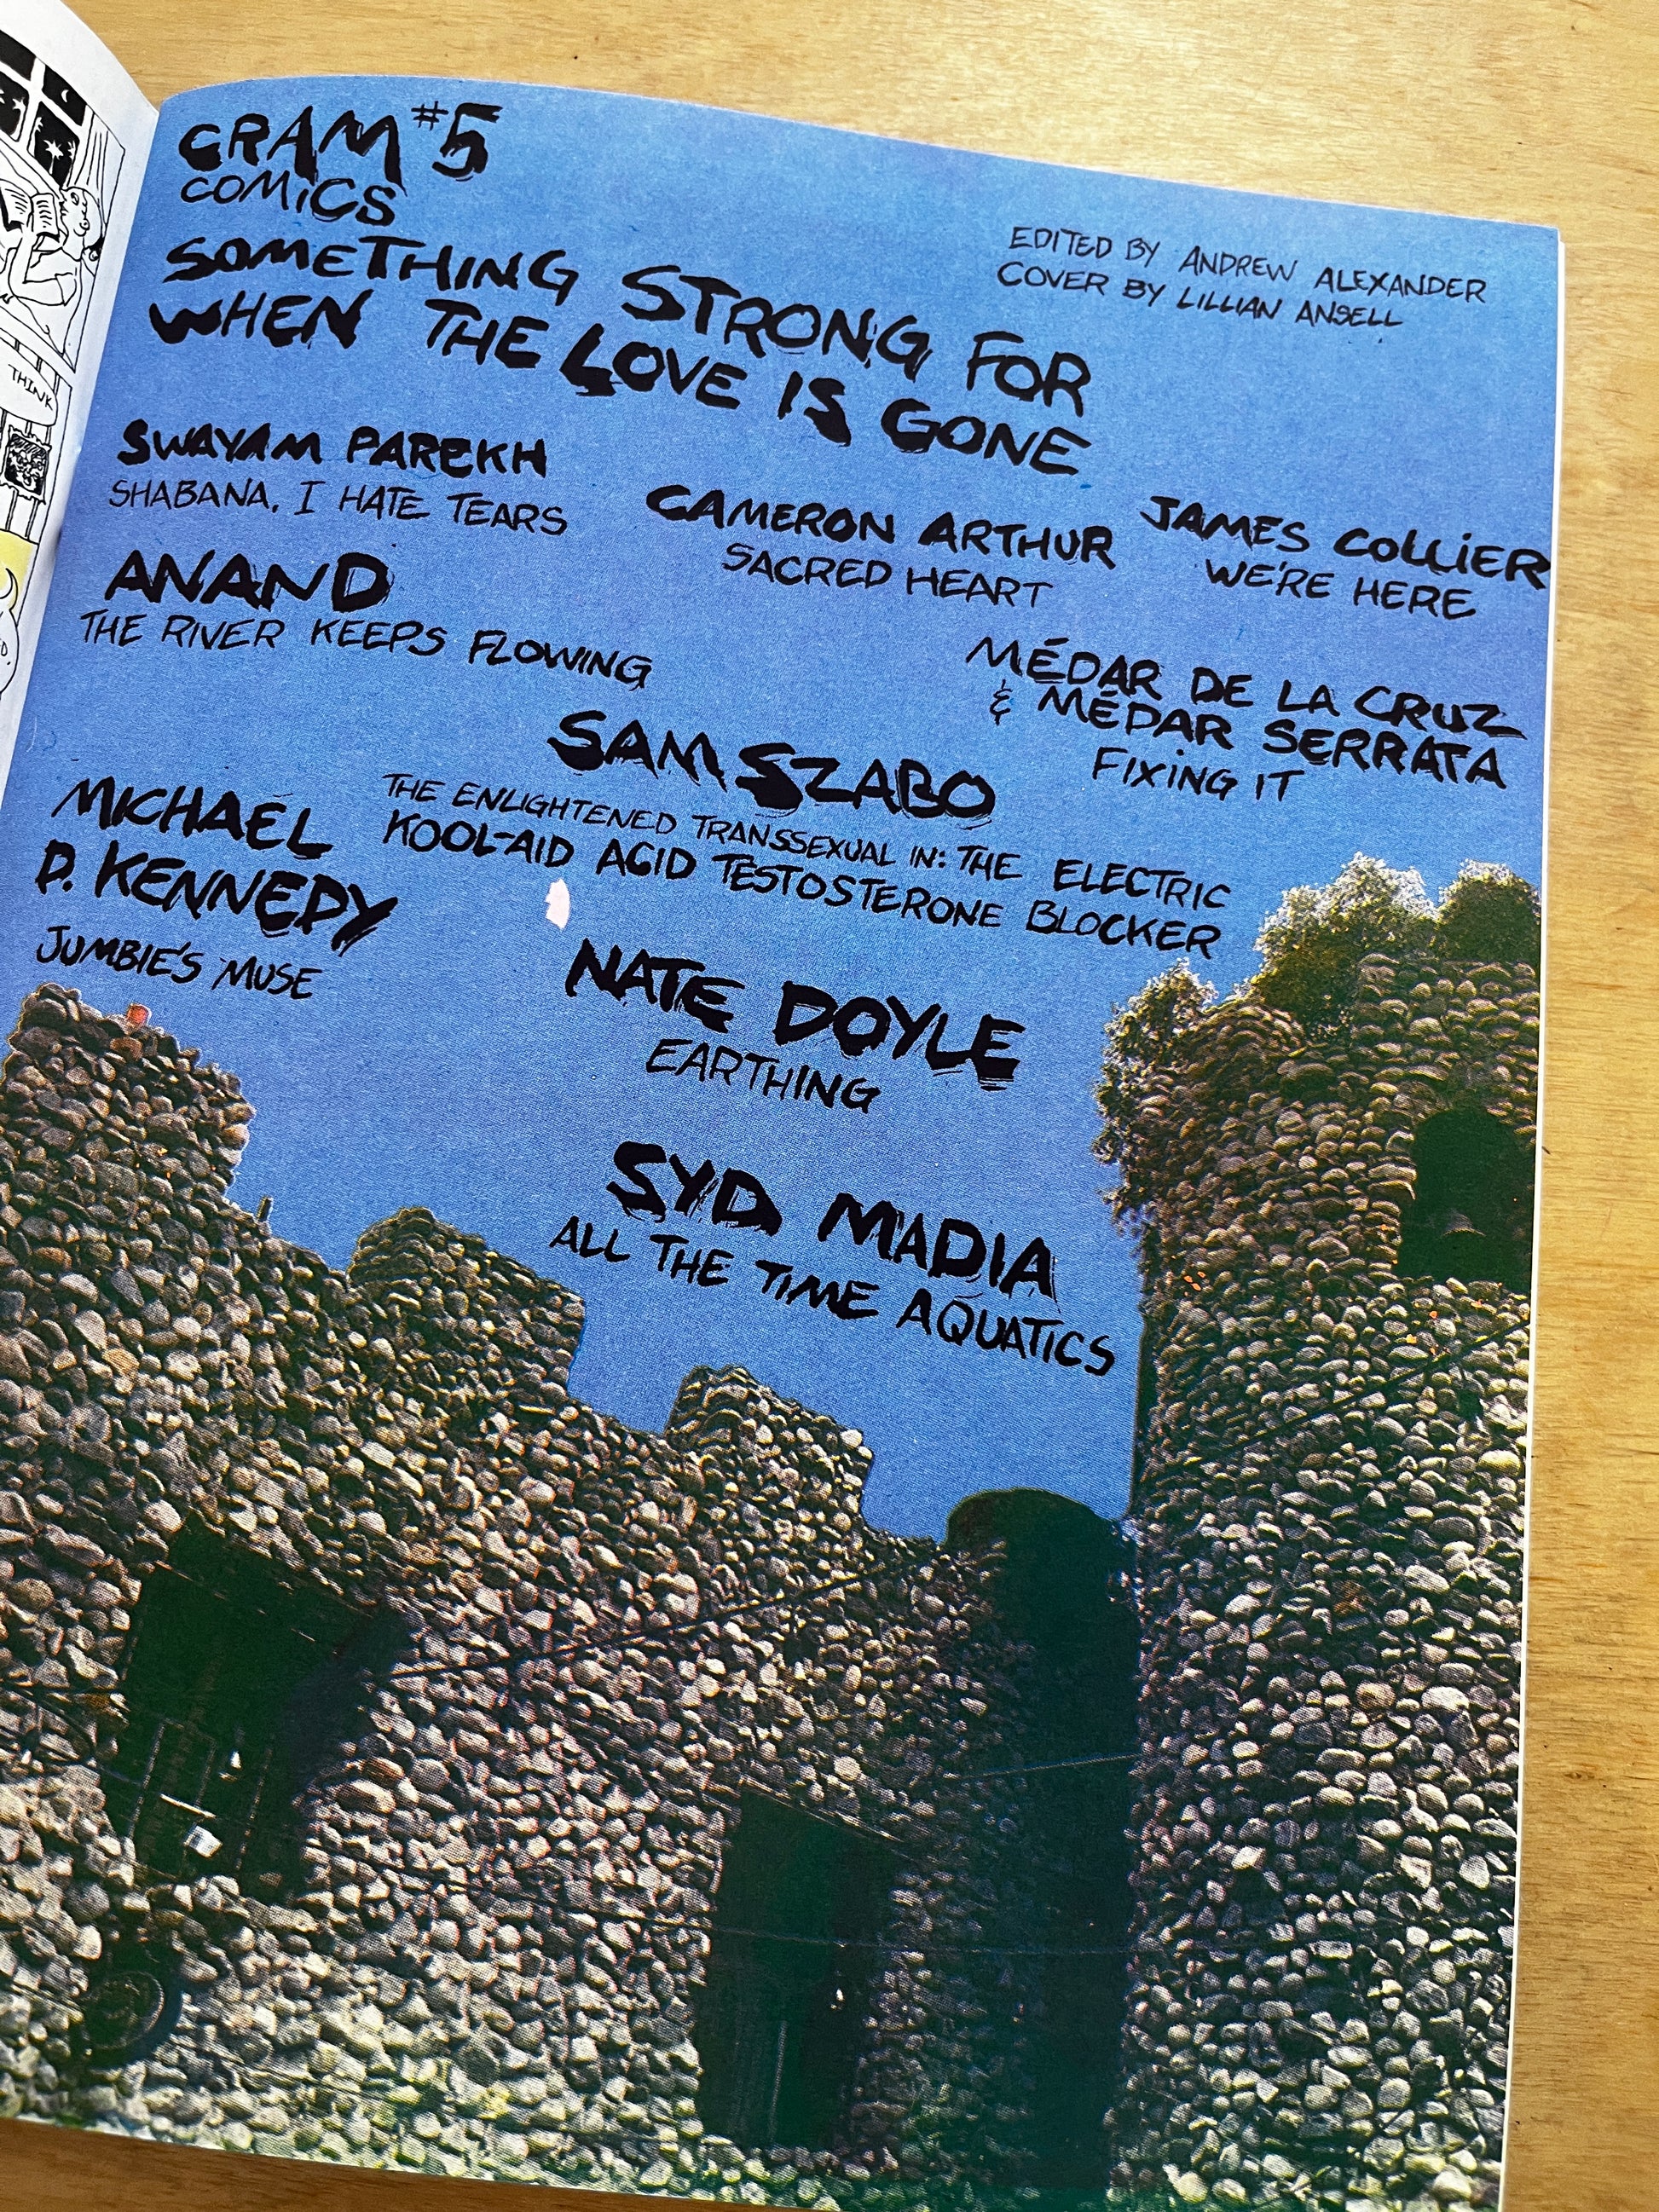 CRAM #5
COMICS
SOMETHING STRONG FOR
WHEN THE LOVE IS GONE
EDITED BY ANDREW ALEXANDER
COVER BY LILLIAN ANSELL
SWAYAM PAREKH
SHABANA, I HATE TEARS
CAMERON ARTHUR
SACRED HEART
JAMES COLLIER
WE'RE HERE
ANAND
THE RIVER KEEPS FLOWING
MÉDAR DE LA CRUZ
& MÉDAR SERRATA
FIXING IT
SAM SZABO
THE ENLIGHTENED TRANSSEXUAL IN: THE ELECTRIC
KOOL-AID ACID TESTOSTERONE BLOCKER
MICHAEL
D. KENNEDY
JUMBIE'S MUSE
NATE DOYLE
EARTHING
SYD MADIA
ALL THE TIME AQUATICS
THINK